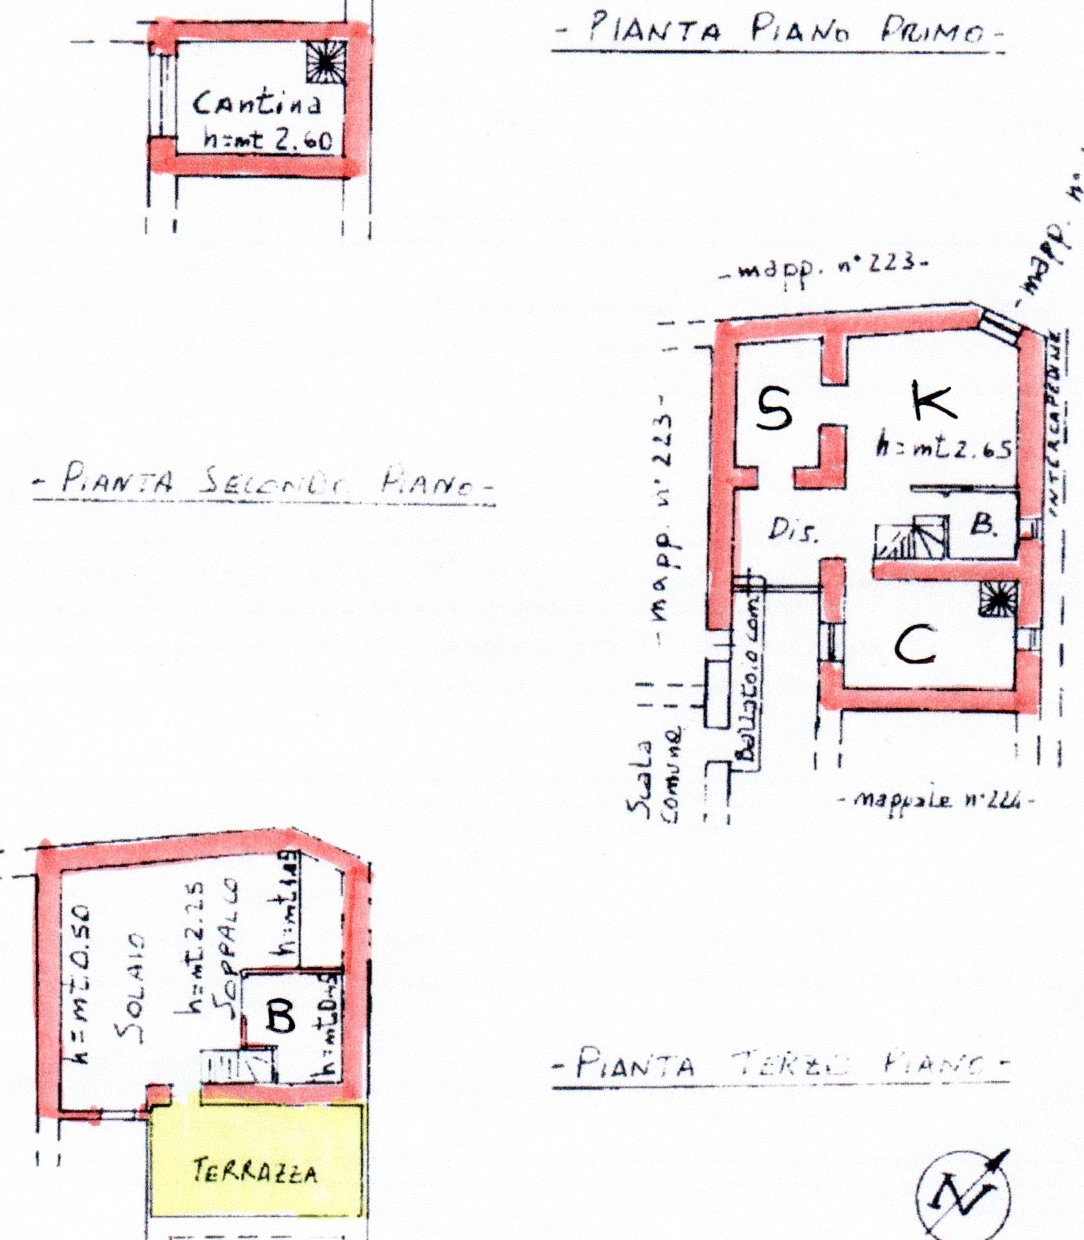 - PIANTA PIANO PRIMO -
Cantina
h=mt 2.60
- mapp. n° 223 -
- mapp. n°
INTERCAPEDINE
S
K
h=mt 2.65
- mapp. n° 223 -
- PIANTA SECONDO PIANO -
Dis.
B.
C
Ballatoio com.
Scala
comune
- mappale n° 224 -
h=mt 0.50
SOLAIO
h=mt 2.25
SOPPALCO
B
- PIANTA TERZO PIANO -
TERRAZZA
N